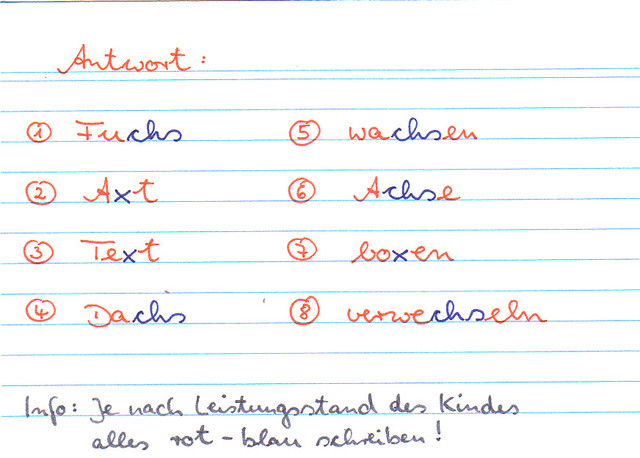 Antwort:
① Fuchs ⑤ wachsen
② Axt ⑥ Achse
③ Text ⑦ boxen
④ Dachs ⑧ verwechseln
Info: Je nach Leistungsstand des Kindes
alles rot-blau schreiben!